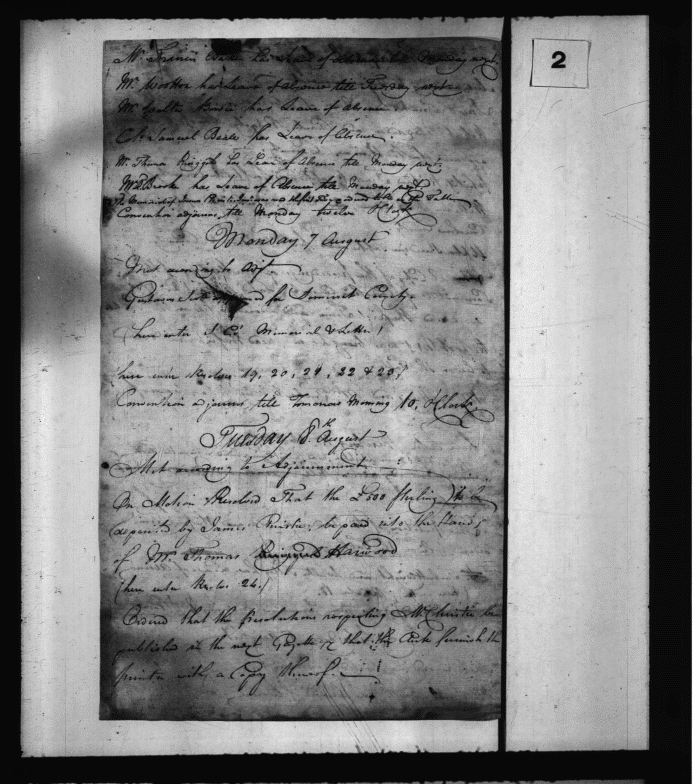 2
Mr. has Leave of Absence till Monday next
Mr. has Leave of absence till Tuesday next
Mr. Walter Bowie has Leave of Absence
Cl. Samuel Beale has Leave of Absence.
Mr. Thomas Ringgold has Leave of Absence till Monday next
Mr. Brooke has Leave of Absence till Monday next
The
Convention adjourns till Monday twelve O'Clock
Monday, 7 August
Met according to Adjt
for Somerset County.
(here enter Memorial & Letter)
(here enter Resolves 19, 20, 21, 22 & 23)
Convention adjourns till Tomorrow Morning 10, O'Clock
Tuesday 8th August
Met according to Adjournment
On Motion Resolved That the £500 sterling to be
deposited by James Christie be paid into the Hands
of Mr. Thomas Harwood
(here enter Resolves 24.)
Ordered that the Resolutions respecting Mr. Christie be
published in the next Gazette & that the Clerk furnish the
printer with a Copy thereof.